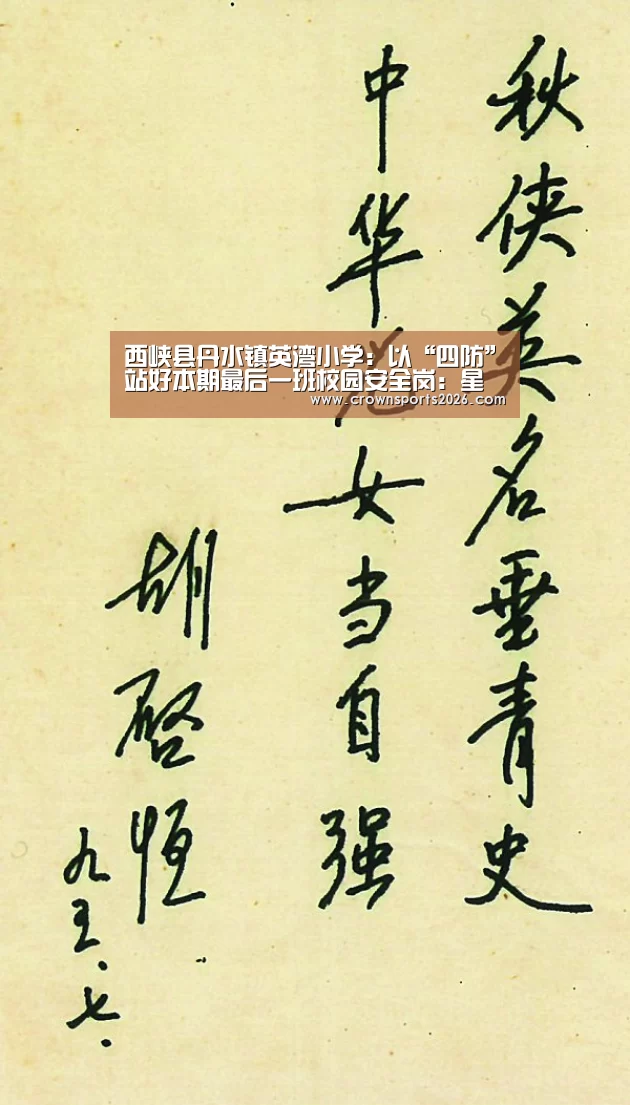 秋侠英名垂青史
中华女当自强
胡启恒
九五.七.
西峡县丹水镇英湾小学：以“四防”
站好本期最后一班校园安全岗：星
www.crownsports2026.com